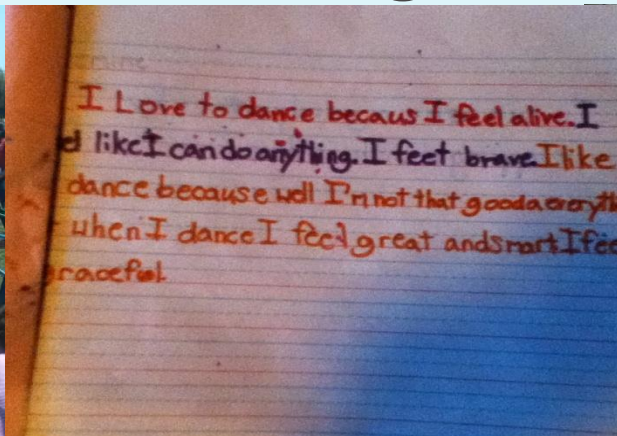 I Love to dance becaus I feel alive. I
d like I can do anything. I feet brave I like
dance because well I'm not that good a everyth
when I dance I feel great and smart I fee
raceful